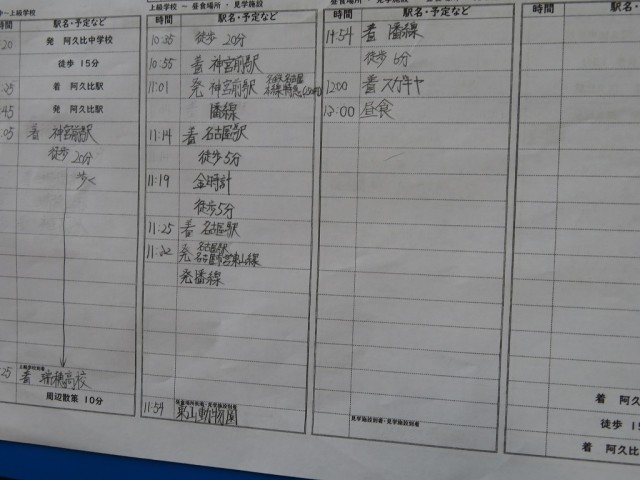 上級学校
時間
駅名・予定など
20
発 阿久比中学校
徒歩 15分
25
着 阿久比駅
45
発 阿久比駅
05
着 神宮前駅
徒歩 20分
歩く
25
上級学校到着
着 瑞穂高校
周辺散策 10分
上級学校 ~ 昼食場所・見学施設
時間
駅名・予定など
10:35
徒歩 20分
10:55
着 神宮前駅
11:01
発 神宮前駅
11:14
着 名古屋駅
徒歩5分
11:19
金時計
徒歩5分
11:25
着 名古屋駅
発 名古屋駅
名古屋市営東山線
11:54
東山動物園
昼食場所・見学施設
時間
駅名・予定など
11:54
着
徒歩 6分
12:00
着 スガキヤ
12:00
昼食
見学施設到着・見学施設到着
時間
着 阿久比
徒歩 15
着 阿久比